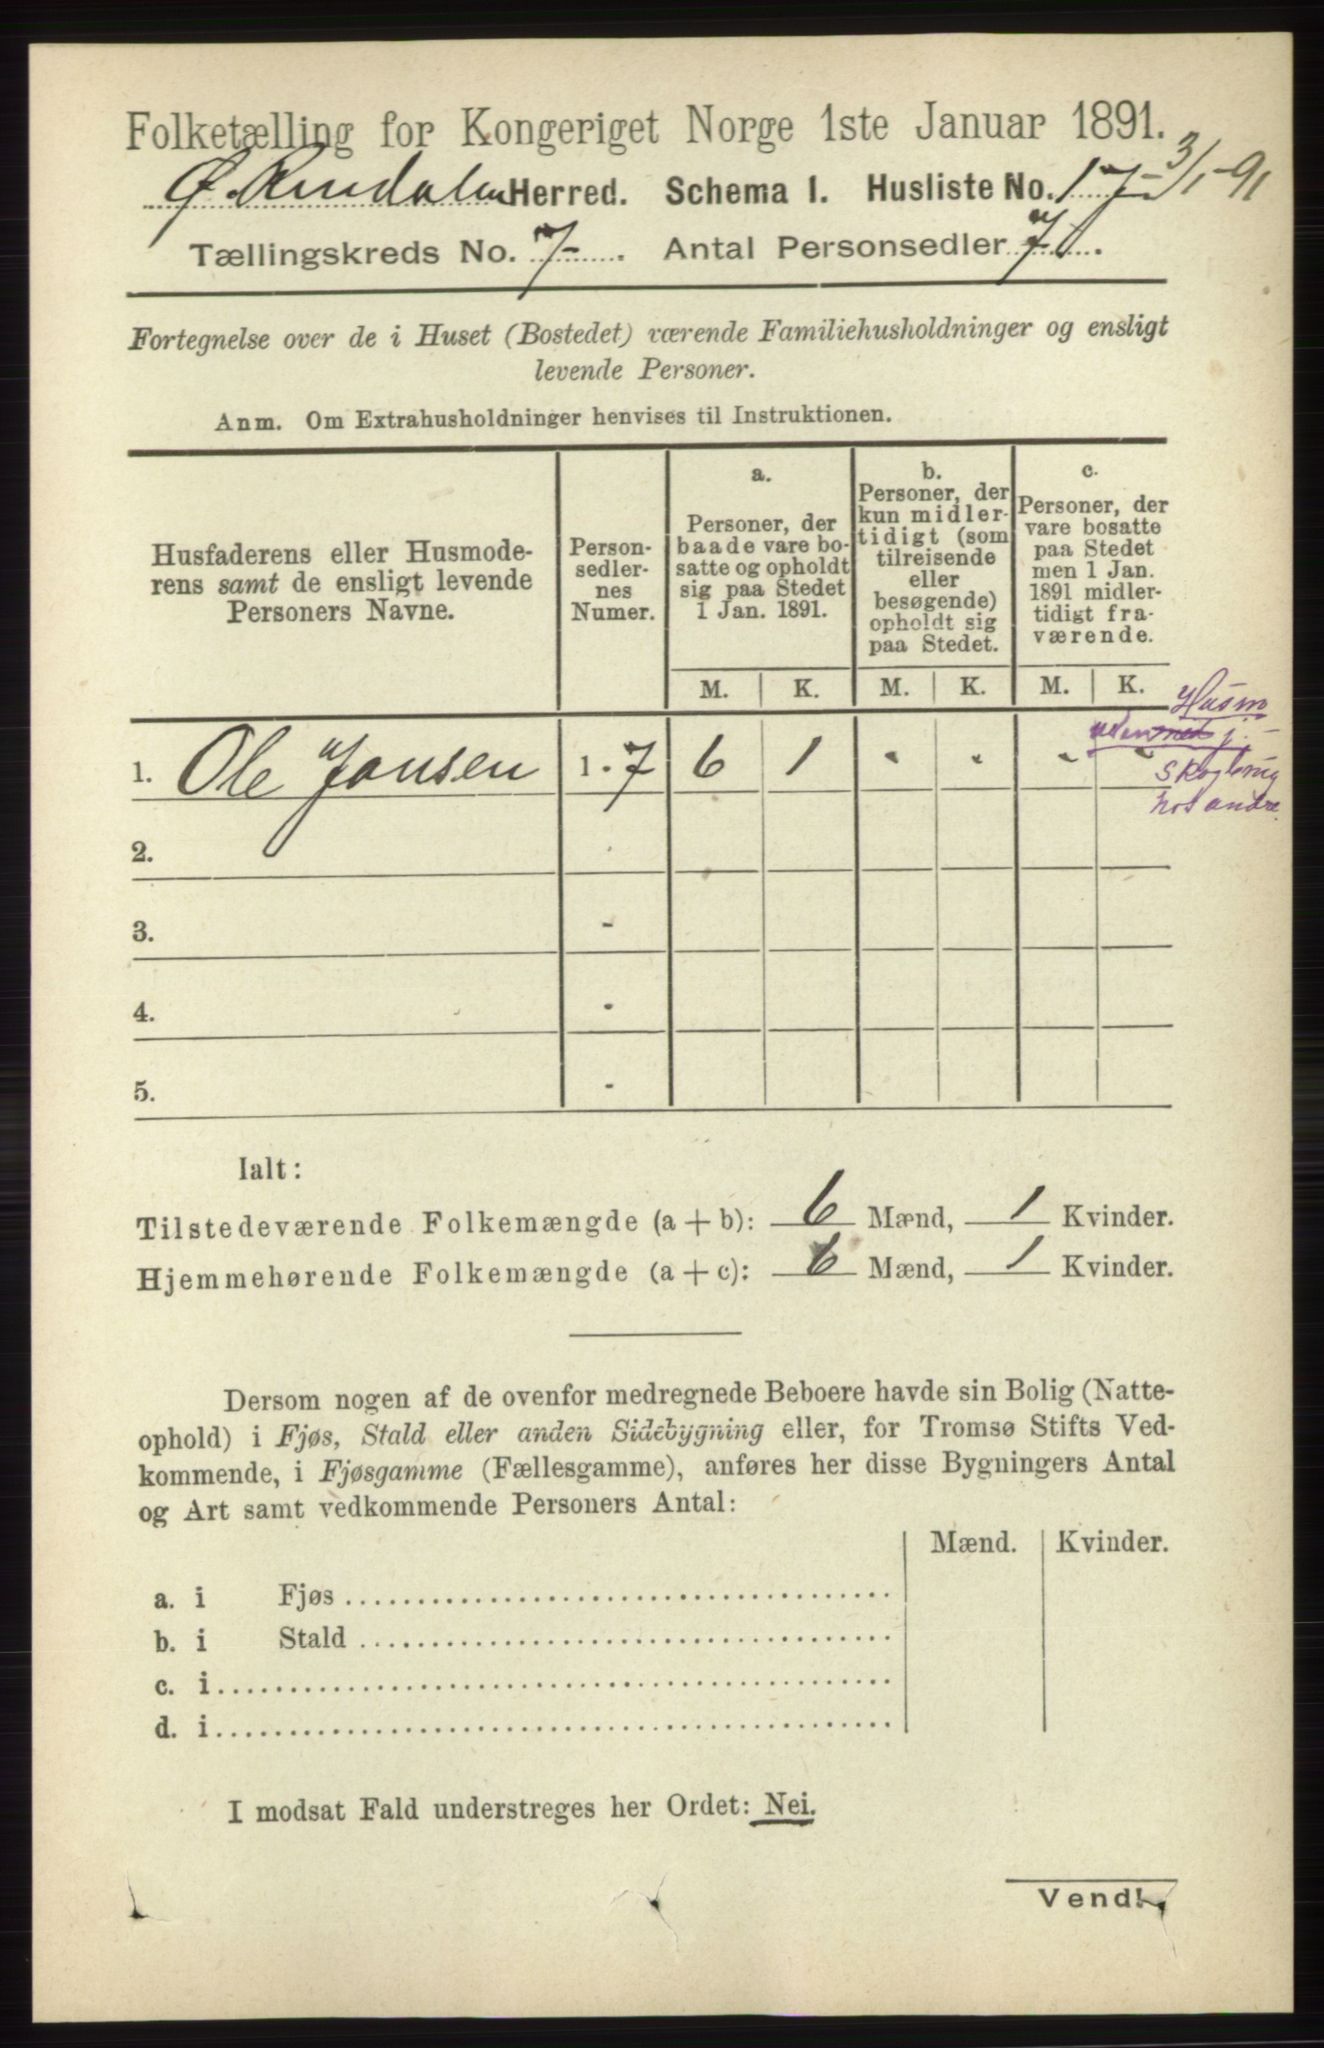 Folketælling for Kongeriget Norge 1ste Januar 1891.
Ø. Rendalen Herred. Schema 1. Husliste No. 17 3/1-91
Tællingskreds No. 7 . Antal Personsedler 7 .
Fortegnelse over de i Huset (Bostedet) værende Familiehusholdninger og ensligt
levende Personer.
Anm. Om Extrahusholdninger henvises til Instruktionen.
Husfaderens eller Husmode-
rens samt de ensligt levende
Personers Navne.
Person-
sedler-
nes
Numer.
a.
Personer, der
baade vare bo-
satte og opholdt
sig paa Stedet
1 Jan. 1891.
b.
Personer, der
kun midler-
tidigt (som
tilreisende
eller
besøgende)
opholdt sig
paa Stedet.
c.
Personer, der
vare bosatte
paa Stedet
men 1 Jan.
1891 midler-
tidigt fra-
værende.
M. K. M. K. M. K.
Husm
uden med j.
Skogbrug
hos andre
1. Ole Jonsen 1 - 7 6 1 - - - -
2. -
3. -
4. -
5. -
Ialt:
Tilstedeværende Folkemængde (a + b): 6 Mænd, 1 Kvinder.
Hjemmehørende Folkemængde (a + c): 6 Mænd, 1 Kvinder.
Dersom nogen af de ovenfor medregnede Beboere havde sin Bolig (Natte-
ophold) i Fjøs, Stald eller anden Sidebygning eller, for Tromsø Stifts Ved-
kommende, i Fjøsgamme (Fællesgamme), anføres her disse Bygningers Antal
og Art samt vedkommende Personers Antal:
Mænd. Kvinder.
a. i Fjøs
b. i Stald
c. i
d. i
I modsat Fald understreges her Ordet: Nei.
Vend!